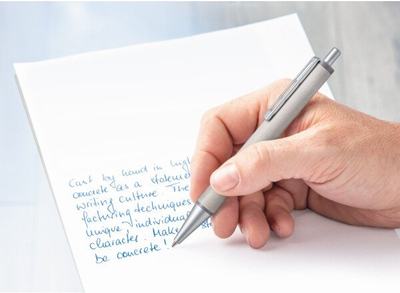 Cast by hand in high
concrete as a statem
writing culture. The
facturing techniques
unique, individua
character. Make a st
be concrete!